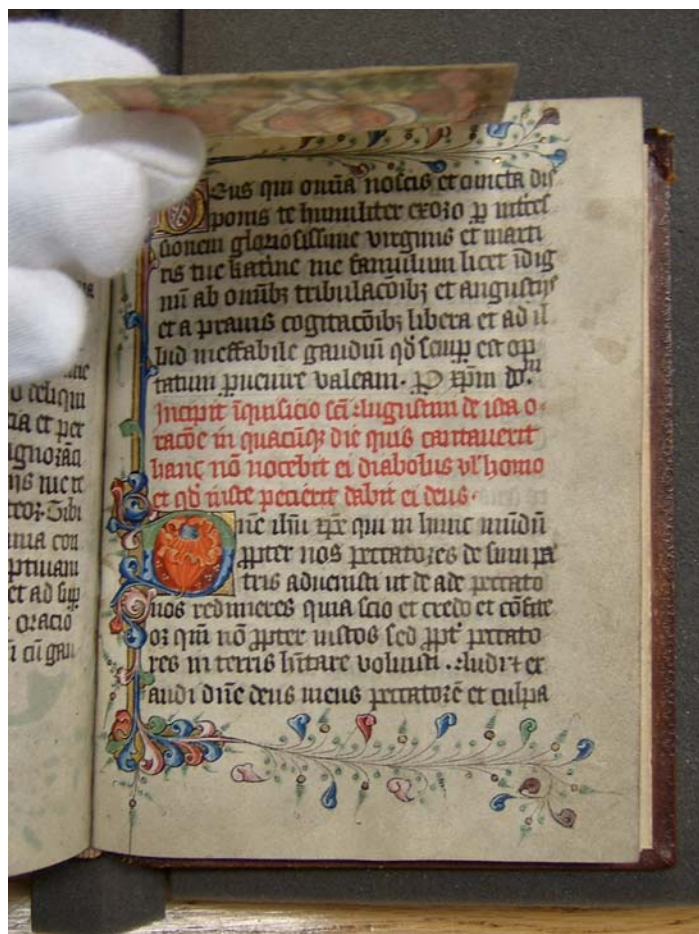 deliqui
et per
Tibi
con
et ad
oracio
cū gau
Deus qui om̄ia noscis et cuncta dis
ponis te humiliter exoro ꝑ interces
sionem gloriosissime virginis et marti
ris tue katine me famulum licet īdig
nū ab omībꝫ tribulacōibꝫ et angustijs
et a prauis cogitacōibꝫ libera et ad il
lud ineffabile gaudiū qd̄ semꝑ est op
tatum ꝑuenire valeam. P xpm̄ dn̄m
Incipit īquisicio scī Augustini de ista o-
racōe in quacūqꝫ die quis cantauerit
hanc nō nocebit ei diabolus vl̄ homo
et qd̄ iuste pecierit dabit ei deus.
Dn̄e ihū xp̄e qui in hunc mūdū
ꝓpter nos peccatores de sinu pa
tris aduenisti ut de ade peccato
nos redimeres quia scio et credo et cōfite
or qm̄ nō ꝓpter iustos sed ꝓpt' peccato
res in terris hītare voluisti. Audi et ex
audi dn̄e deus meus peccatorē et culpa